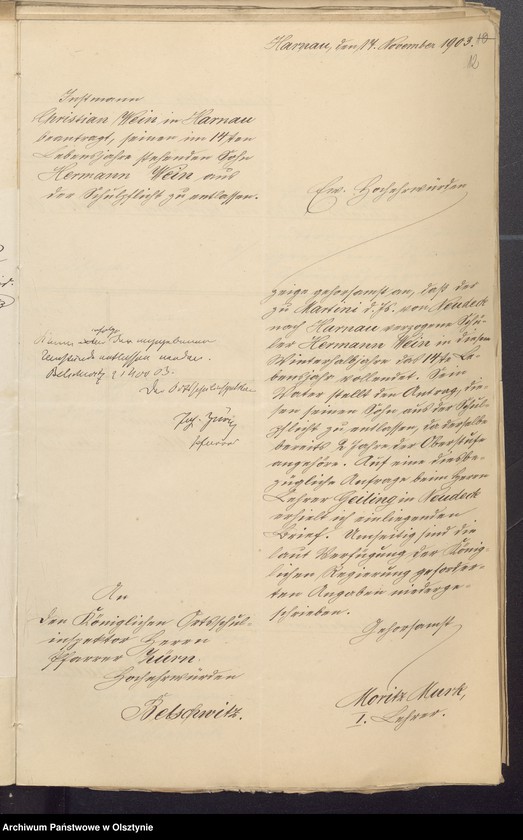 Harnau, den 14. November 1903.
12
Instmann
Christian Wein in Harnau
beantragt, seinen im 14ten
Lebensjahre stehenden Sohn
Hermann Wein aus
der Schulpflicht zu entlassen.
Ew. Hochehrwürden
zeige gehorsamst an, daß der
zu Martini d. Js. von Neudeck
nach Harnau verzogene Schü-
ler Hermann Wein in diesem
Winterhalbjahre das 14te Le-
bensjahr vollendet. Sein
Vater stellt den Antrag, die-
sen seinen Sohn aus der Schul-
pflicht zu entlassen, da derselbe
bereits 2 Jahre der Oberstufe
angehöre. Auf eine diesbe-
zügliche Anfrage beim Herrn
Lehrer Geiling in Neudeck
erhielt ich einliegenden
Brief. Umseitig sind die
laut Verfügung der König-
lichen Regierung geforder-
ten Angaben niederge-
schrieben.
Gehorsamst
Moritz Murk,
I. Lehrer.
Kann der angegebenen
entlassen werden.
Belschwitz 03.
Der Ortsschulinspektor
Zürn
Pfarrer
An
den Königlichen Ortsschul-
inspektor Herrn
Pfarrer Zürn.
Hochehrwürden
Belschwitz.
Archiwum Państwowe w Olsztynie